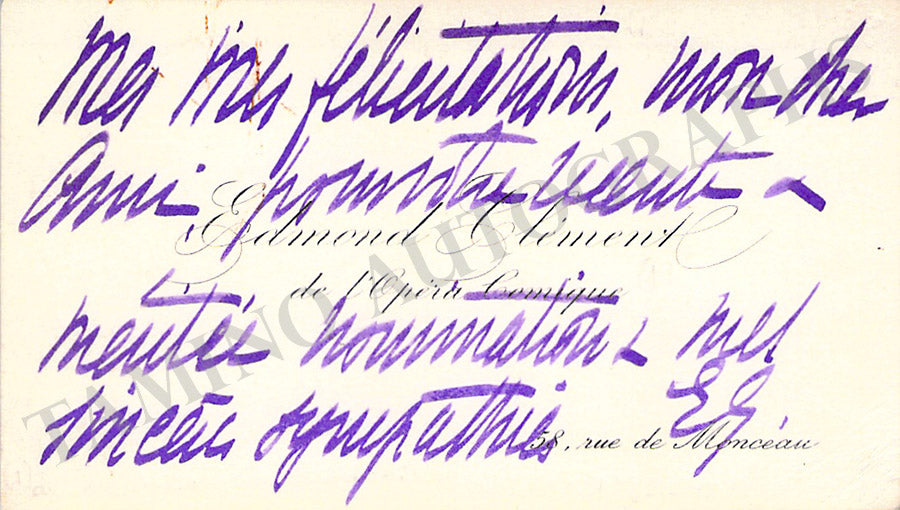 Mes vives félicitations, mon cher
Ami, pour votre récente &
Edmond Clément
de l'Opéra Comique
méritée nomination & mes
sincères sympathies EC
58, rue de Monceau
TAMINO AUTOGRAPHS